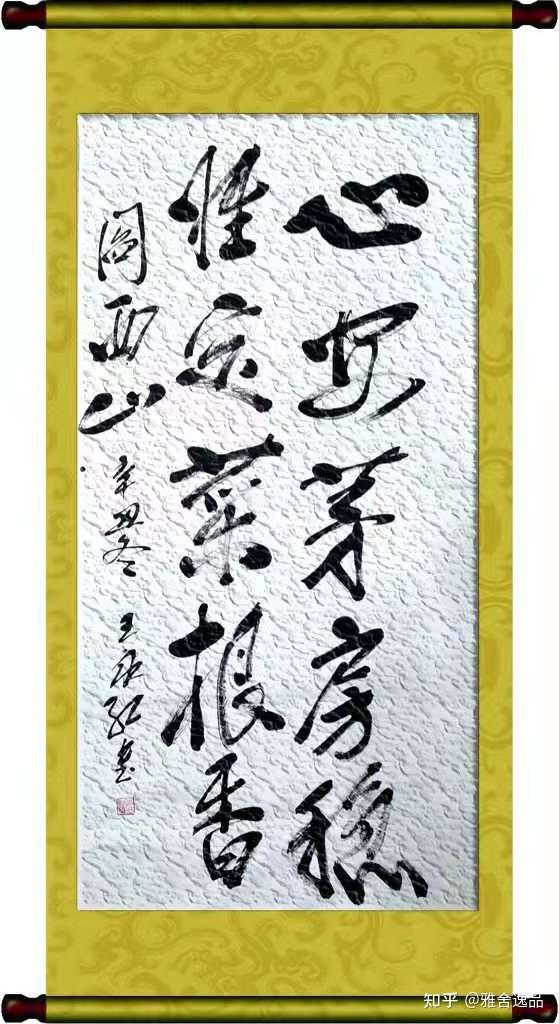 心安茅房稳
性定菜根香
阎西山 辛丑冬 王
知乎 @雅舍逸品